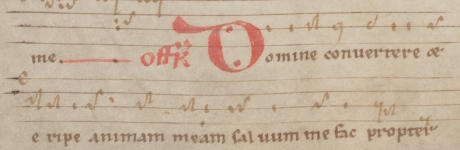 me. offR Domine convertere &
e ripe animam meam saluum me fac propter